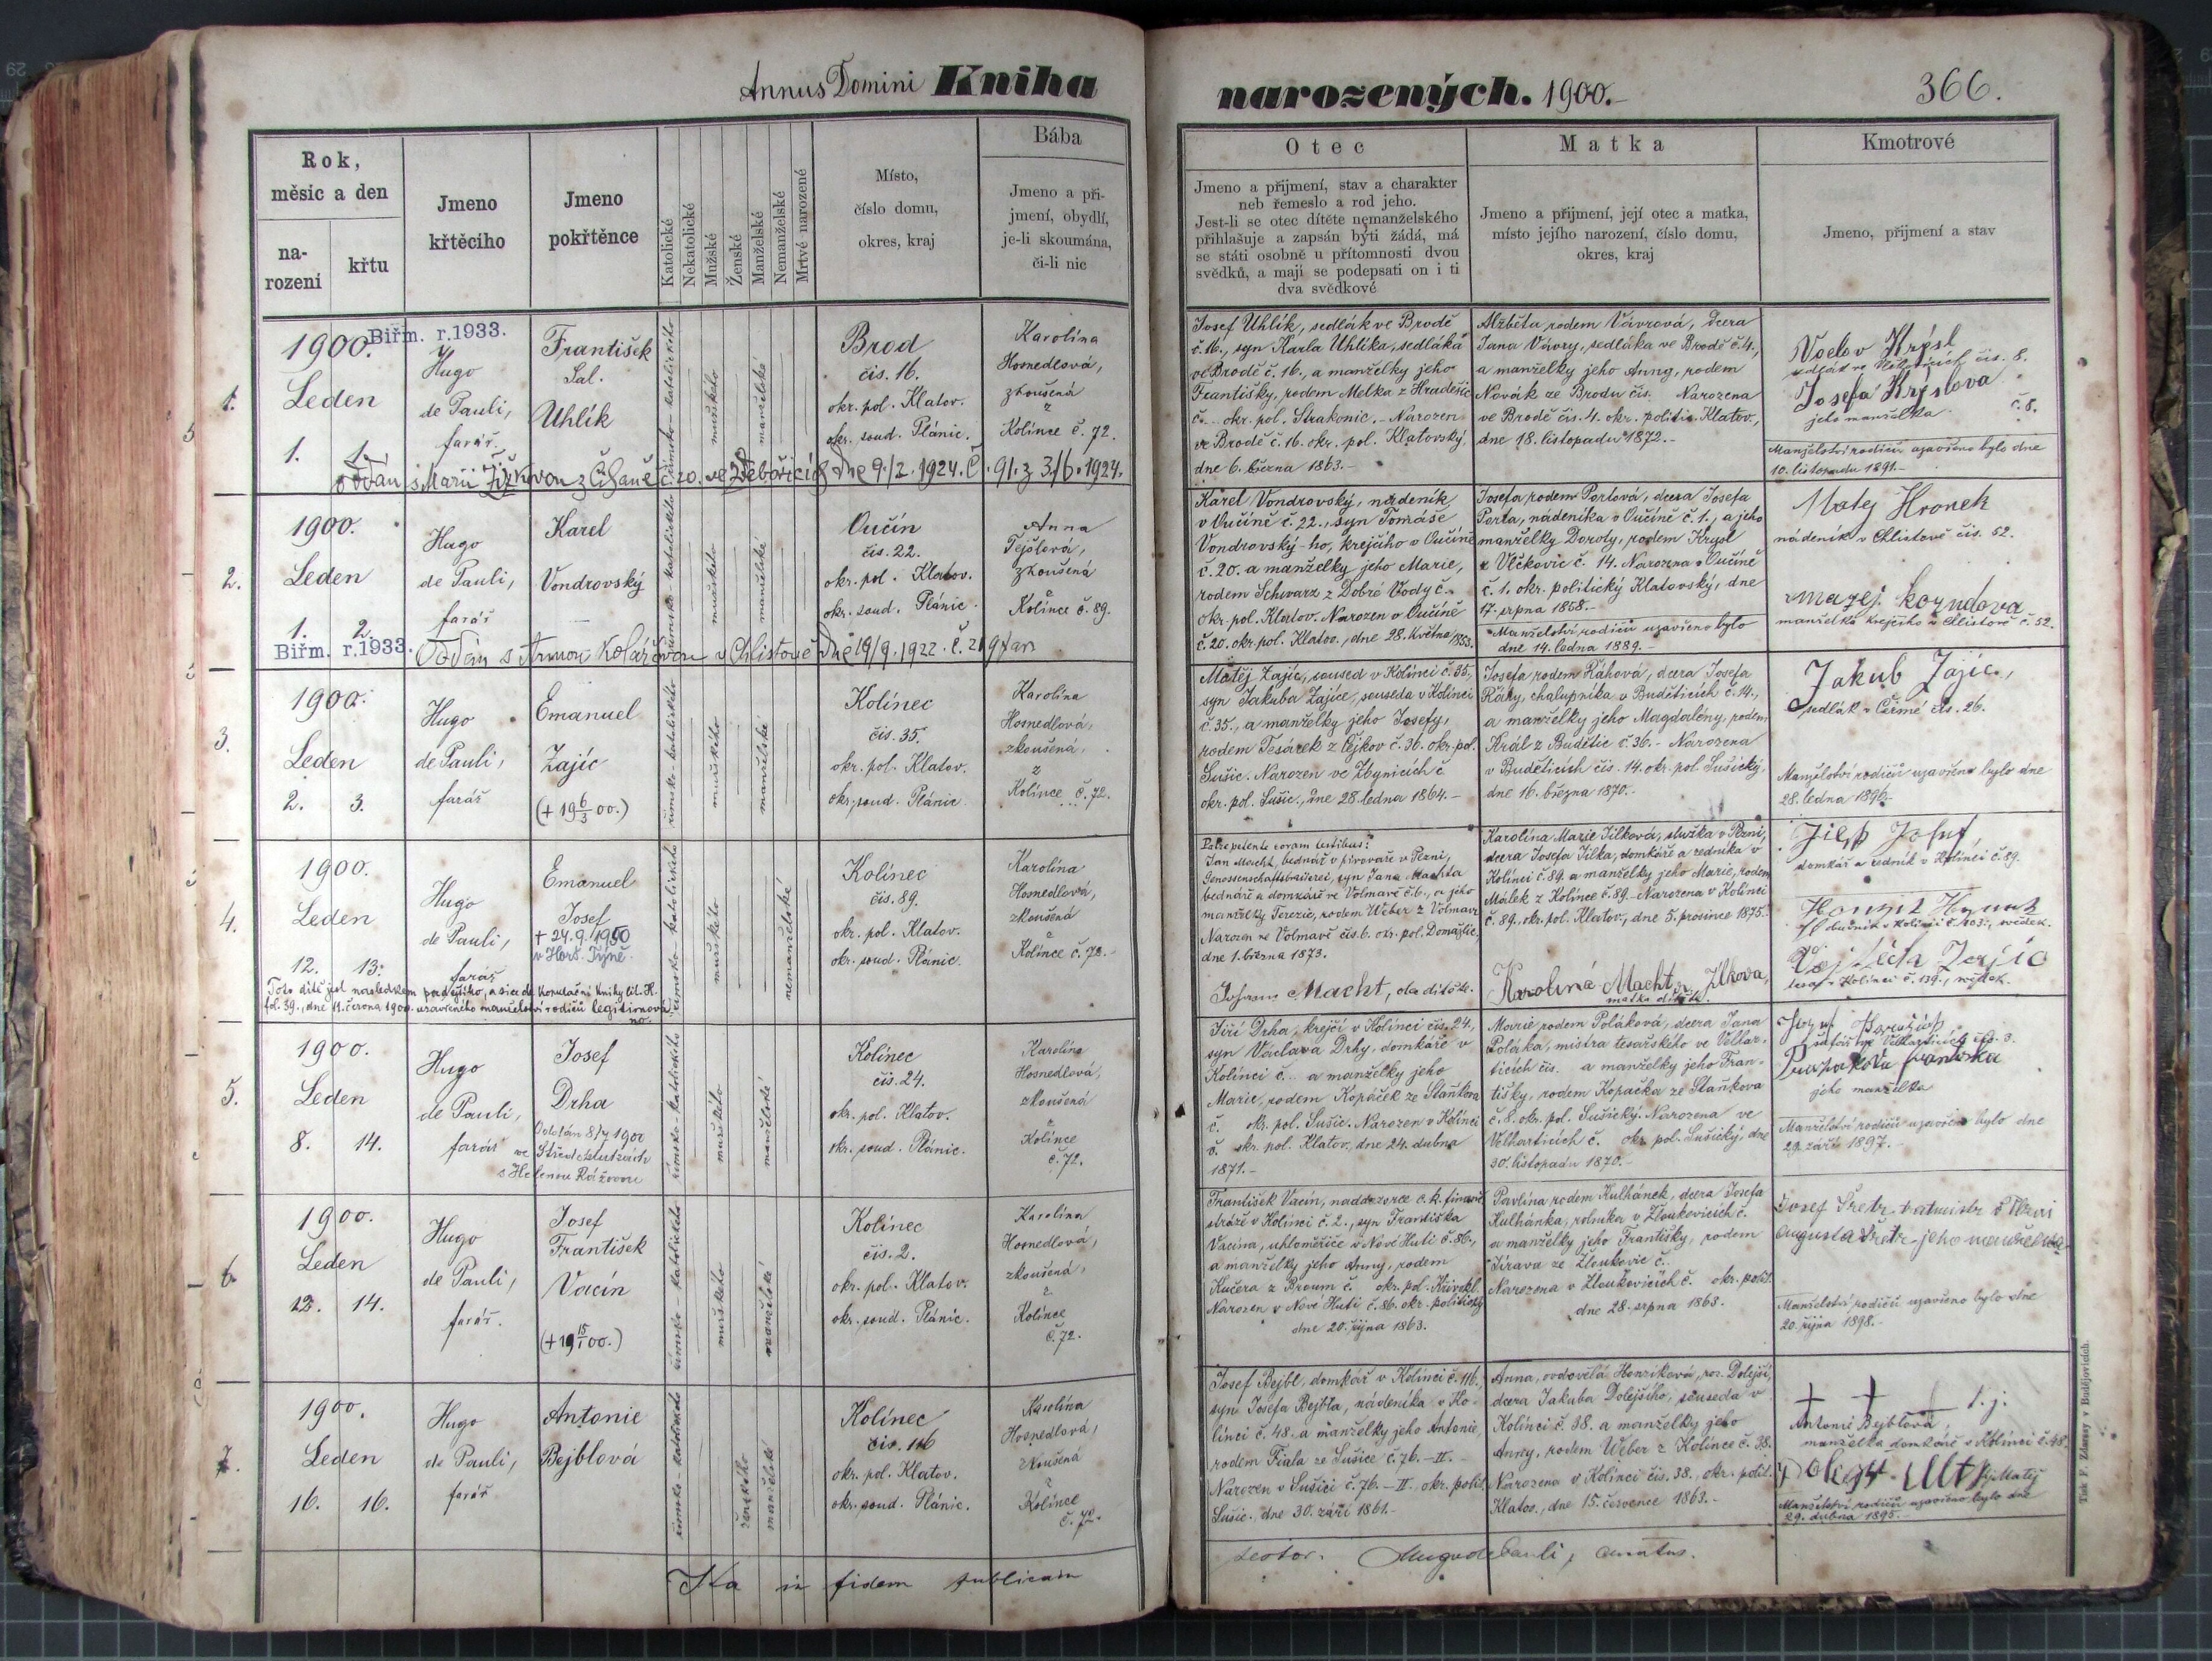 Annus Domini Kniha
narozených. 1900.-
366.
Rok,
měsíc a den
na-
rození
křtu
Jmeno
křtěcího
Jmeno
pokřtěnce
Katolické
Nekatolické
Mužské
Ženské
Manželské
Nemanželské
Mrtvé narozené
Místo,
číslo domu,
okres, kraj
Bába
Jmeno a pří-
jmení, obydlí,
je-li skoumána,
či-li nic
Otec
Jmeno a přijmení, stav a charakter
neb řemeslo a rod jeho.
Jest-li se otec dítěte nemanželského
přihlašuje a zapsán býti žádá, má
se státi osobně u přítomnosti dvou
svědků, a mají se podepsati on i ti
dva svědkové
Matka
Jmeno a přijmení, její otec a matka,
místo jejího narození, číslo domu,
okres, kraj
Kmotrové
Jmeno, přijmení a stav
1.
Biřm. r.1933.
1900.
Leden
1. 1.
Hugo
de Pauli,
farář.
František
Sal.
Uhlík
římsko-katolického
mužského
manželské
Brod
čís. 16.
okr. pol. Klatov.
okr. soud. Plánic.
Karolína
Hosnedlová,
zkoušená
z
Kolínce č. 72.
Josef Uhlík, sedlák ve Brodě
č. 16., syn Karla Uhlíka, sedláka
ve Brodě č. 16., a manželky jeho
Františky, rodem Melka z Hradešic
č... okr. pol. Strakonic.- Narozen
ve Brodě č. 16. okr. pol. Klatovský
dne 6. března 1863.-
Alžběta, rodem Vávrová, dcera
Jana Vávry, sedláka ve Brodě č.4.,
a manželky jeho Anny, rodem
Novák ze Brodu čís. Narozena
ve Brodě čís. 4. okr. politic. Klatov.,
dne 18. listopadu 1872.-
Josefa Krýslova
jeho manželka č. 8.
Manželství rodičů uzavřeno bylo dne
10. listopadu 1891.-
oddán s Marií dne 9./2. 1924. Č. 91. z 3./6. 1924.
2.
1900.
Leden
1. 2.
Biřm. r.1933.
Hugo
de Pauli,
farář
Karel
Vondrovský
římsko katolického
mužského
manželské
Oučín
čís. 22.
okr. pol. Klatov.
okr. soud. Plánic.
Anna
zkoušená
z
Kolínce č. 89.
Karel Vondrovský, nádeník
v Oučíně č. 22., syn Tomáše
Vondrovský-ho, krejčího v Oučíně
č. 20. a manželky jeho Marie,
rodem Schwarz z Dobré Vody č.-
okr. pol. Klatov. Narozen v Oučíně
č. 20. okr. pol. Klatov., dne 28. května 1853.
Josefa, rodem Portová, dcera Josefa
Porta, nádeníka v Oučíně č. 1., a jeho
manželky Doroty, rodem Krysl
z Vlčkovic č. 14. Narozena v Oučíně
č. 1. okr. politický Klatovský, dne
17. srpna 1858.-
Manželství rodičů uzavřeno bylo
dne 14. ledna 1889.-
Matej Hronek
nádeník v Chlistově čís. 52.
manželka krejčího v Chlistově č. 52.
Oddán s Annou Kolářovou v Chlistově dne 19/9. 1922.
3.
1900.
Leden
2. 3.
Hugo
de Pauli,
farář
Emanuel
Zajíc
(+ 19 6/3 00.)
římsko-katolického
mužského
manželské
Kolínec
čís. 35.
okr. pol. Klatov.
okr. soud. Plánic.
Karolína
Hosnedlová,
zkoušená,
z
Kolínce č. 72.
Matěj Zajíc, soused v Kolínci č. 35.,
syn Jakuba Zajíce, souseda v Kolínci
č. 35., a manželky jeho Josefy,
rodem Tesárek z Čejkov č. 36. okr. pol.
Sušic. Narozen ve Zbynicích č.
okr. pol. Sušic., dne 28. ledna 1864.-
Josefa, rodem Ráhová, dcera Josefa
Ráhy, chalupníka v Buděticích č. 14.,
a manželky jeho Magdalény, rodem
Král z Budětic č. 36.- Narozena
v Buděticích čís. 14. okr. pol. Sušický,
dne 16. března 1870.-
Jakub Zajíc,
sedlák v Čermé čís. 26.
Manželství rodičů uzavřeno bylo dne
28. ledna 1896.-
4.
1900.
Leden
12. 13.
Hugo
de Pauli,
farář
Emanuel
Josef
+ 24.9.1950
v Horš. Týně.
římsko-katolického
mužského
nemanželské
Kolínec
čís. 89.
okr. pol. Klatov.
okr. soud. Plánic.
Karolína
Hosnedlová,
zkoušená
z
Kolínce č. 72.-
Patre petente coram testibus:
Jan Macht, bednář v pivovaře v Plzni,
Genossenschaftsbrauerei, syn Jana Machta
bednáře a domkáře ve Volmavě č. 6., a jeho
manželky Terezie, rodem Weber z Volmavy
Narozen ve Volmavě čís. 6. okr. pol. Domažlic.,
dne 1. března 1873.
Johann Macht, otec dítěte.
Karolína Marie Jílková, služka v Plzni,
dcera Josefa Jílka, domkáře a zedníka v
Kolínci č. 89. a manželky jeho Marie, rodem
Málek z Kolínce č. 89.- Narozena v Kolínci
č. 89., okr. pol. Klatov., dne 5. prosince 1875.-
Karolína Macht r. Jílkova,
matka dítěte.
Jílek Josef,
domkář a zedník v Kolínci č. 89.
Toto dítě jest následkem pozdějšího, a sice dle kopulační knihy lit. H.
fol. 39., dne 11. června 1900. uzavřeného manželství rodičů legitimová-
no.
5.
1900.
Leden
8. 14.
Hugo
de Pauli,
farář
Josef
Drha
s Helenou Rážovou
římsko-katolického
mužského
manželské
Kolínec
čís. 24.
okr. pol. Klatov.
okr. soud. Plánic.
Karolína
Hosnedlová,
zkoušená
z
Kolínce
č. 72.
Jiří Drha, krejčí v Kolínci čís. 24.,
syn Václava Drhy, domkáře v
Kolínci č... a manželky jeho
Marie, rodem Kopáček ze Staňkova
č. okr. pol. Sušic. Narozen v Kolínci
č. okr. pol. Klatov., dne 24. dubna
1871.-
Marie, rodem Poláková, dcera Jana
Poláka, mistra tesařského ve Velhar-
ticích čís. a manželky jeho Fran-
tišky, rodem Kopačka ze Staňkova
č. 8. okr. pol. Sušický. Narozena ve
Velharticích č. okr. pol. Sušický, dne
30. listopadu 1870.-
jeho manželka
Manželství rodičů uzavřeno bylo dne
29. září 1897.-
6.
1900.
Leden
12. 14.
Hugo
de Pauli,
farář.
Josef
František
Vacín
(+ 19 15/1 00.)
římsko katolického
mužského
manželské
Kolínec
čís. 2.
okr. pol. Klatov.
okr. soud. Plánic.
Karolína
Hosnedlová,
zkoušená,
z
Kolínce
č. 72.
František Vacín, naddozorce c. k. finanč.
stráže v Kolínci č. 2., syn Františka
Vacína, uhloměřiče v Nové Huti č. 86.,
a manželky jeho Anny, rodem
Kučera z Broum č. okr. pol. Křivokl.
Narozen v Nové Huti č. 86. okr. politický
dne 20. října 1863.
Pavlína, rodem Kulhánek, dcera Josefa
Kulhánka, rolníka v Zloukovicích č.
a manželky jeho Františky, rodem
Jirava ze Zloukovic č.
Narozena v Zloukovicích č. okr. polit.
dne 28. srpna 1868.
Manželství rodičů uzavřeno bylo dne
20. října 1898.-
7.
1900.
Leden
16. 16.
Hugo
de Pauli,
farář
Antonie
Bejblová
římsko-katolického
ženského
manželské
Kolínec
čís. 116
okr. pol. Klatov.
okr. soud. Plánic.
Karolína
Hosnedlová,
zkoušená
z
Kolínce
č. 72.
Josef Bejbl, domkář v Kolínci č. 116.,
syn Josefa Bejbla, nádeníka v Ko-
línci č. 48. a manželky jeho Antonie,
rodem Fiala ze Sušice č. 76.-II.-
Narozen v Sušici č. 76.-II., okr. polit.
Sušic., dne 30. září 1861.-
Anna, ovdovělá Honzíková, roz. Dolejší,
dcera Jakuba Dolejšího, souseda v
Kolínci č. 38. a manželky jeho
Anny, rodem Weber z Kolínce č. 38.
Narozena v Kolínci čís. 38., okr. polit.
Klatov., dne 15. července 1863.-
Antonie Bejblová,
manželka domkáře v Kolínci č. 48.
Manželství rodičů uzavřeno bylo dne
29. dubna 1895.-
Ita in fidem publicam
testor. Hugo de Pauli, curatus.
Tisk F. Zdarssy v Budějovicích